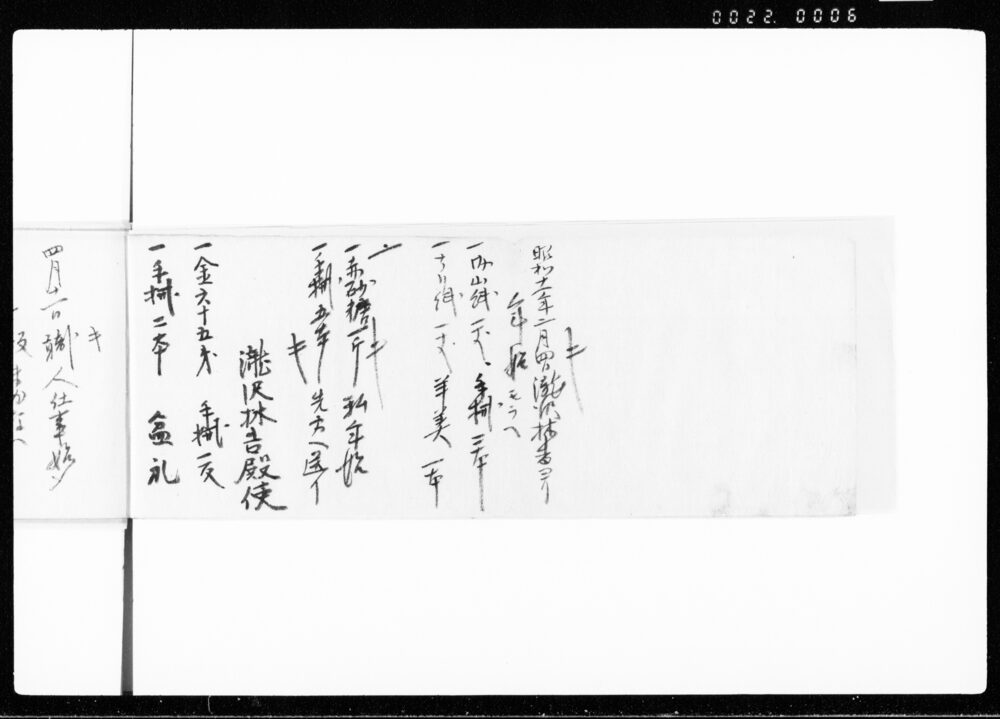 0022.0006
キ
昭和十一年二月四日瀧沢林吉ヨリ
年始モラヘ
一内山紙一〆、手拭三本
一ちり紙一〆 羊美一本
一赤砂糖一斤 私年始
一手拭五本 先方へ送り
キ
瀧沢林吉殿使
一金六十五才 手拭一反
一手拭二本 盆礼
キ
四月一日職人仕事始メ